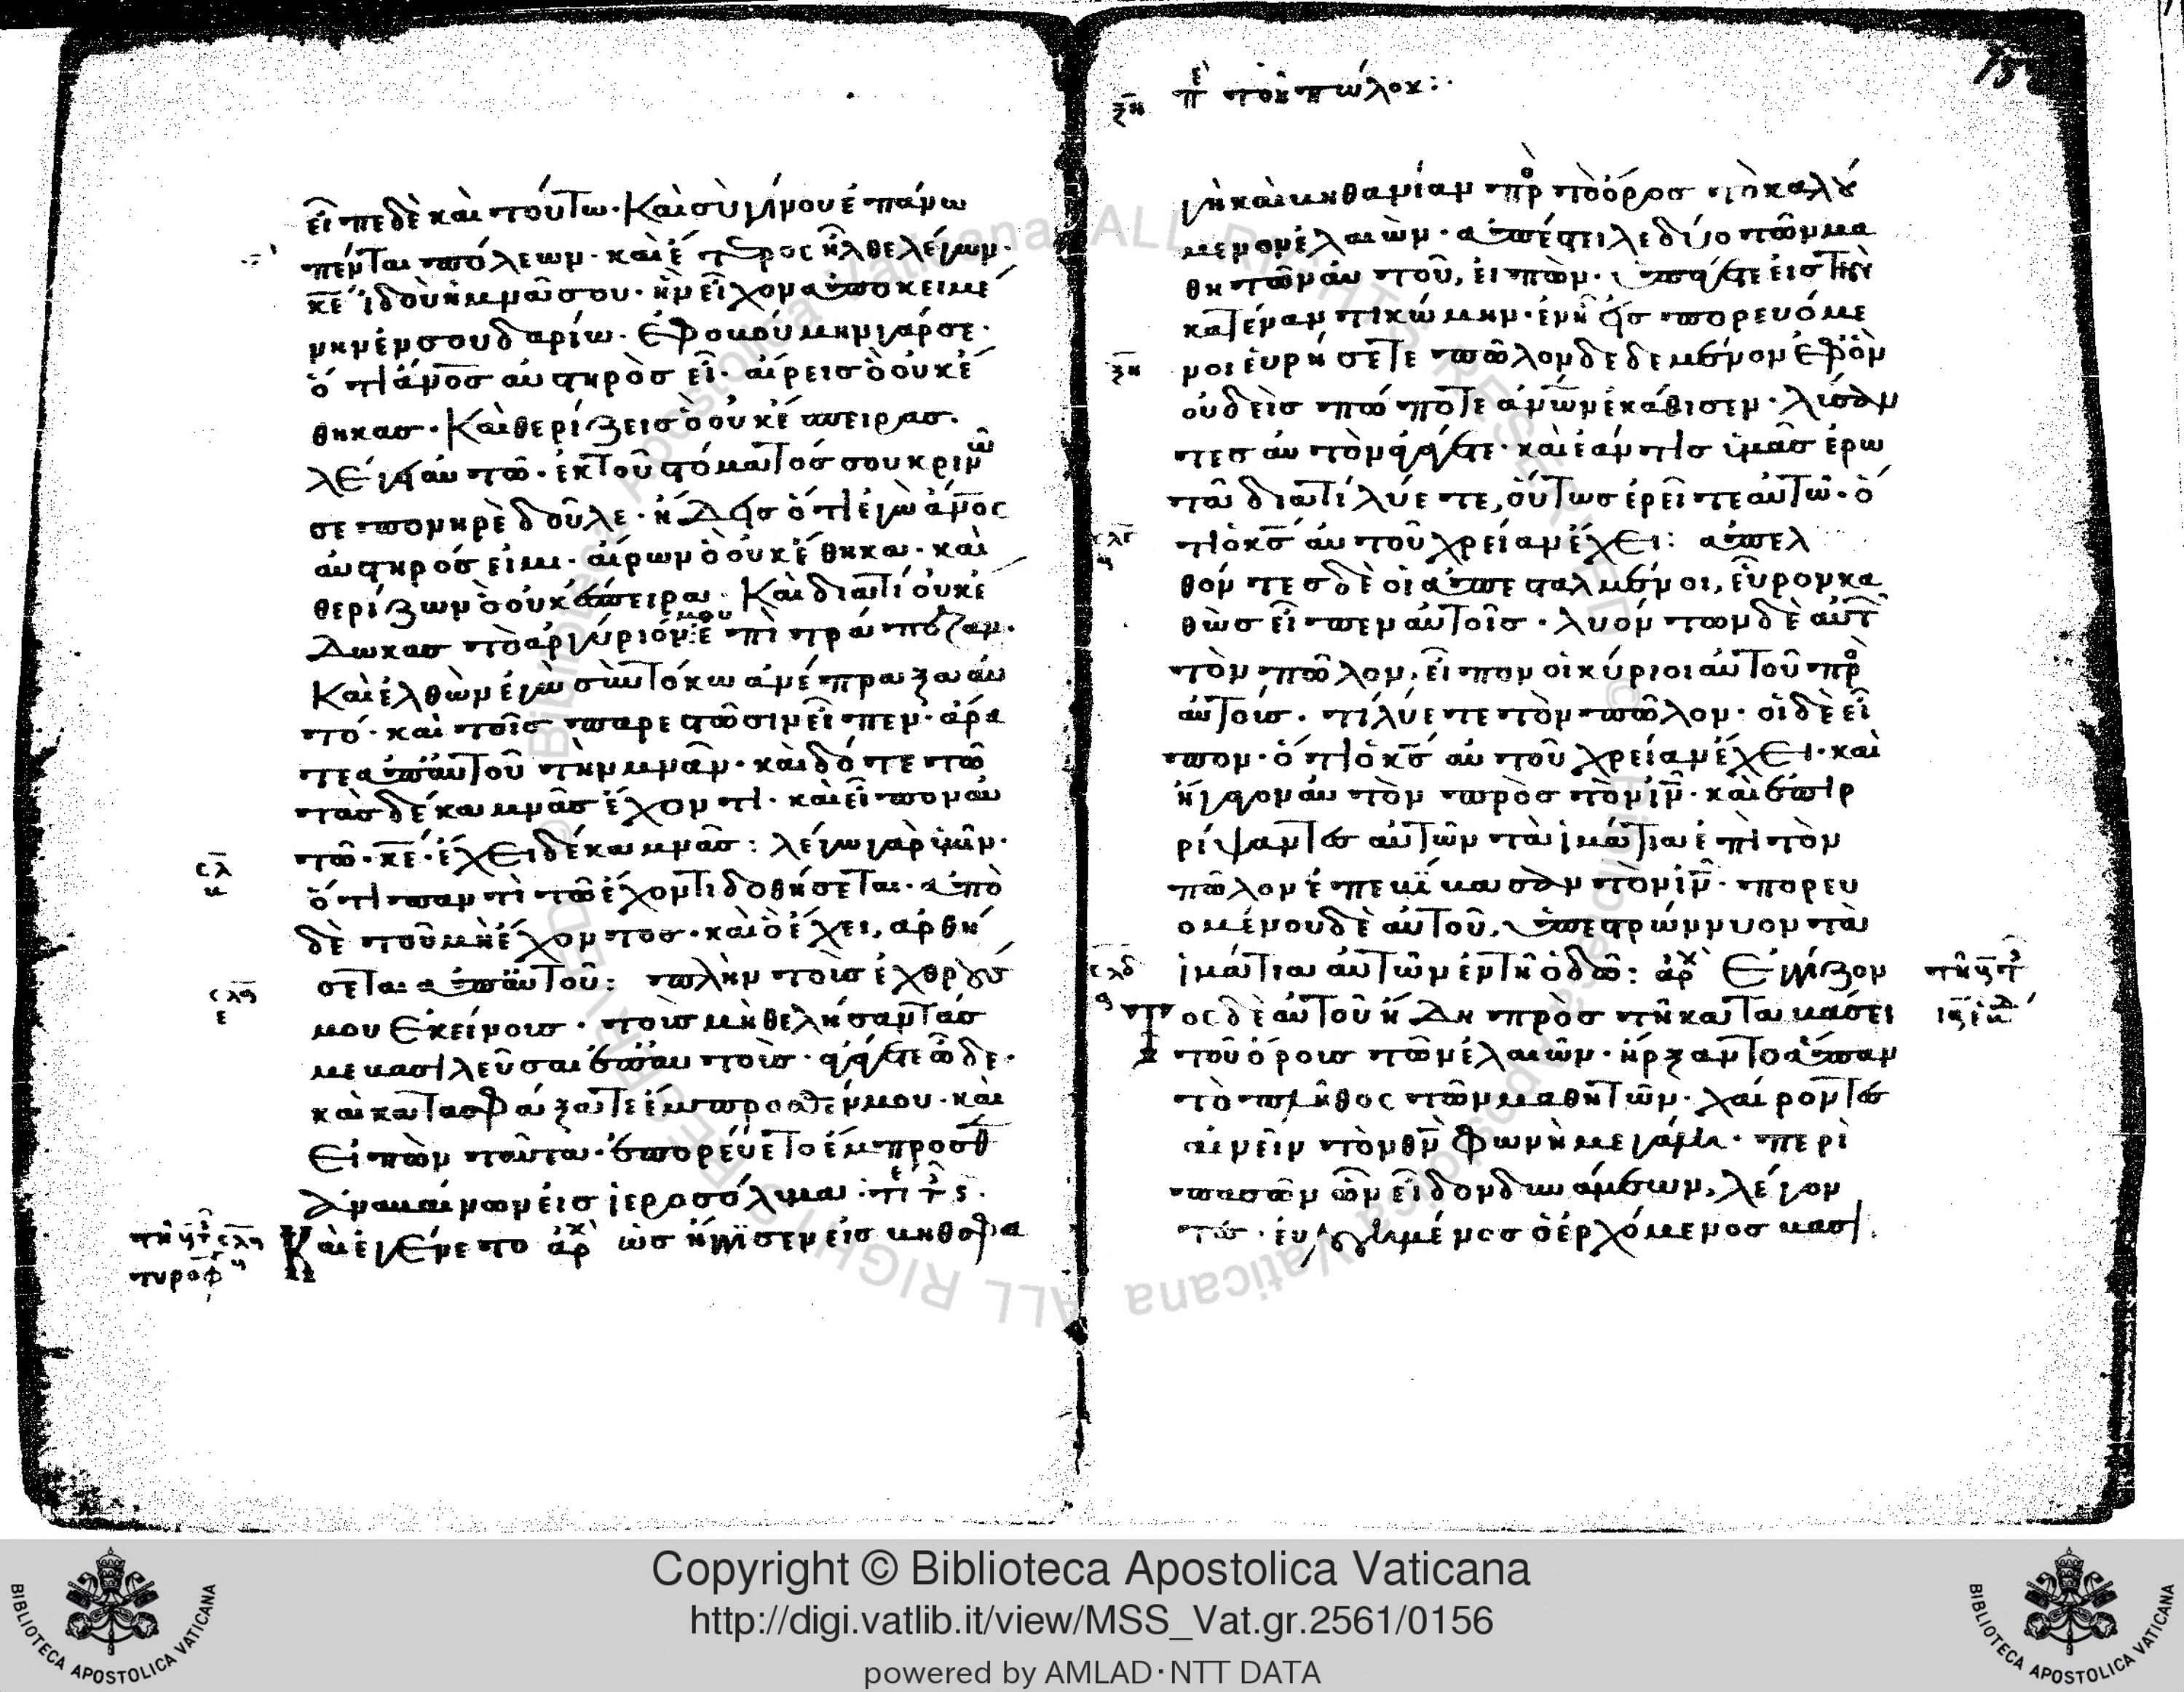 εἶπε δὲ καὶ τούτω· Καὶ σὺ γίνου ἐπάνω
πέντε πόλεων· καὶ ἕτερος ἦλθε λέγων·
κε̅ ἰδοὺ ἡ μνᾶ σου· ἣν εἶχον ἀποκειμέ
νην ἐν σουδαρίω· ἐφοβούμην γάρ σε·
ὅτι ἄνο̅σ αὐστηρὸσ εἶ· αἴρεισ ὃ οὐκ ἔ
θηκασ· Καὶ θερίζεισ ὃ οὐκ ἔσπειρασ·
λέγει αὐτῶ· ἐκ τοῦ στόματόσ σου κρινῶ
σε πονηρὲ δοῦλε· ἤδεισ ὅτι ἐγὼ ἄνο̅ς
αὐστηρόσ εἰμι· αἴρων ὃ οὐκ ἔθηκα· καὶ
θερίζων ὃ οὐκ ἔσπειρα· Καὶ διατί οὐκ ἔ
δωκασ τὸ ἀργύριόν μου ἐπὶ τράπεζαν·
Καὶ ἐλθὼν ἐγὼ σὺν τόκω ἂν ἔπραξα αὐ
τό· καὶ τοῖσ παρεστῶσιν εἶπεν· ἄρα
τε ἀπ' αὐτοῦ τὴν μνᾶν· καὶ δότε τῶ
τὰσ δέκα μνᾶσ ἔχοντι· καὶ εἶπον αὐ
τῶ· κε̅· ἔχει δέκα μνᾶσ: λέγω γὰρ ὑμῖν·
ὅτι παντὶ τῶ ἔχοντι δοθήσεται· ἀπὸ
δὲ τοῦ μὴ ἔχοντοσ· καὶ ὃ ἔχει, ἀρθή
σεται ἀπ' αὐτοῦ: πλὴν τοὺσ ἐχθρούσ
μου ἐκείνουσ· τοὺσ μὴ θελήσαντάσ
με βασιλεῦσαι ἐπ' αὐτοὺσ· ἀγάγετε ὧδε·
καὶ κατασφάξατε ἔμπροσθέν μου· καὶ
εἰπὼν ταῦτα· ἐπορεύετο ἔμπροσθ
ἀναβαίνων εἰσ ἱεροσόλυμα:
Καὶ ἐγένετο ἀρχ ὡσ ἤγγισεν εἰσ βηθσφα
ξη πε τοῦ πώλου:·
γὴ καὶ βηθανίαν πρ τὸ ὄροσ τὸ καλού
μενον ἐλαιὼν· ἀπέστιλε δύο τῶν μα
θητῶν αὐτοῦ, εἰπὼν· ὑπάγετε εἰσ τὴν
κατέναντι κώμην· ἐν ῆ εἰσπορευόμε
νοι εὑρήσετε πῶλον δεδεμένον ἐφ' ὃν
οὐδεὶσ πώποτε ἀνων̅ ἐκάθισεν· λύσαν
τεσ αὐτὸν ἀγάγετε· καὶ ἐάν τισ ὑμᾶσ ἐρω
τᾶ διατί λύετε, οὕτωσ ἐρεῖτε αὐτῶ· ὅ
τι ὁ κσ̅ αὐτοῦ χρείαν ἔχει: ἀπελ
θόντεσ δὲ οἱ ἀπεσταλμένοι, εὗρον κα
θὼσ εἶπεν αὐτοῖσ· λυόντων δὲ αὐτ
τὸν πῶλον, εἶπον οἱ κύριοι αὐτοῦ πρ
αὐτούσ· τί λύετε τὸν πῶλον· οἱ δὲ εἶ
πον· ὅτι ὁ κσ̅ αὐτοῦ χρείαν ἔχει· καὶ
ἤγαγον αὐτὸν πρὸσ τὸν ἰν̅· καὶ ἐπιρ
ρίψαντεσ αὐτῶν τὰ ἱμάτια ἐπὶ τὸν
πῶλον ἐπεβίβασαν τὸν ἰν̅· πορευ
ομένου δὲ αὐτοῦ, ὑπεστρώννυον τὰ
ἱμάτια αὐτῶν ἐν τῆ ὁδῶ: ἀρχ ἐγγίζον
τος δὲ αὐτοῦ ἤδη πρὸσ τῆ καταβάσει
τοῦ ὄρουσ τῶν ἐλαιῶν· ἤρξαντο ἅπαν
τὸ πλῆθος τῶν μαθητῶν· χαίροντεσ
αἰνεῖν τὸν θν̅ φωνὴ μεγάλη· περὶ
πασῶν ὧν εἶδον δυνάμεων, λέγον
τεσ· εὐλογημένοσ ὁ ἐρχόμενοσ βασι
Copyright © Biblioteca Apostolica Vaticana
http://digi.vatlib.it/view/MSS_Vat.gr.2561/0156
powered by AMLAD·NTT DATA
BIBLIOTECA APOSTOLICA VATICANA
BIBLIOTECA APOSTOLICA VATICANA